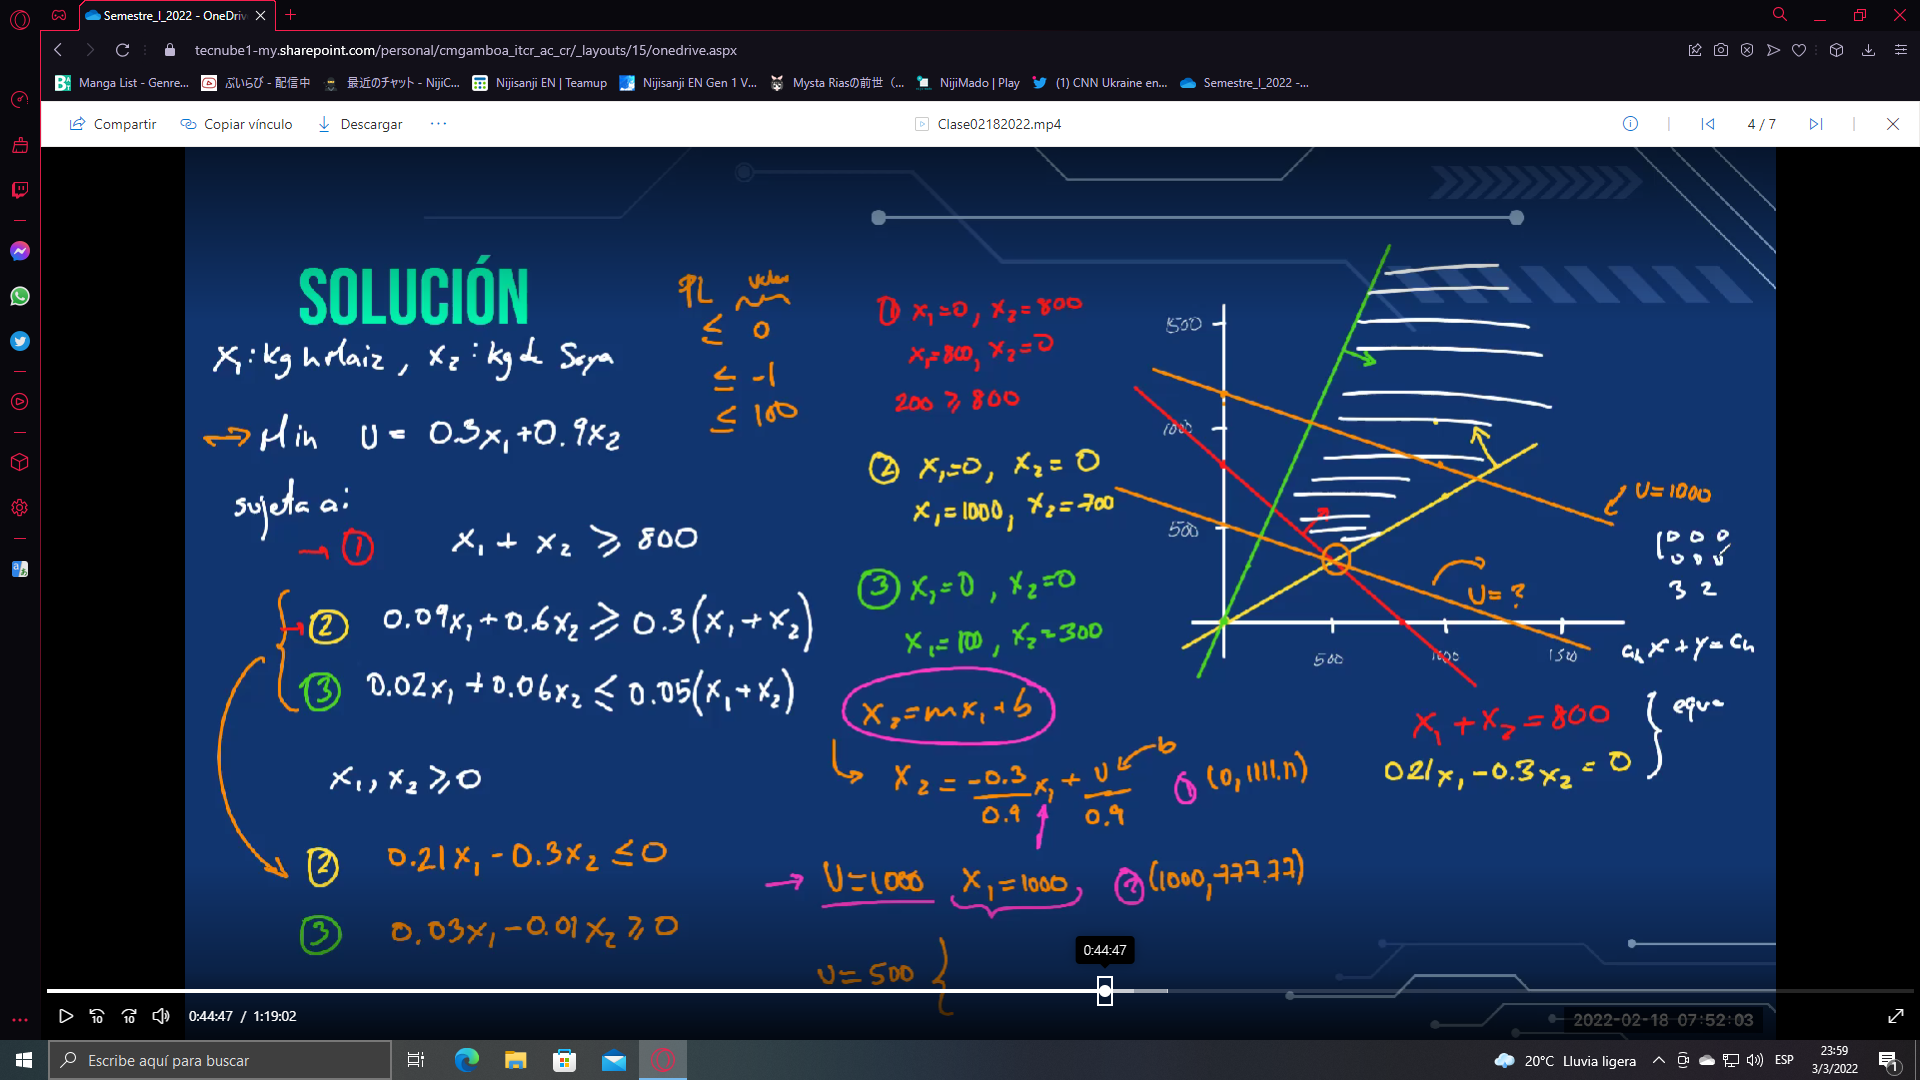 Semestre_I_2022 - OneDriv
tecnube1-my.sharepoint.com/personal/cmgamboa_itcr_ac_cr/_layouts/15/onedrive.aspx
Manga List - Genre...
ぶいらび - 配信中
最近のチャット - NijiC...
Nijisanji EN | Teamup
Nijisanji EN Gen 1 V...
Mysta Riasの前世（...
NijiMado | Play
(1) CNN Ukraine en...
Semestre_I_2022 -...
Compartir
Copiar vínculo
Descargar
Clase02182022.mp4
4 / 7
SOLUCIÓN
x₁: kg Maiz, x₂: kg de Soya
Min U = 0.3x₁+0.9x₂
sujeta a:
① x₁ + x₂ ≥ 800
② 0.09x₁+0.6x₂ ≥ 0.3(x₁+x₂)
③ 0.02x₁+0.06x₂ ≤ 0.05(x₁+x₂)
x₁, x₂ ≥ 0
② 0.21x₁-0.3x₂ ≤ 0
③ 0.03x₁-0.01x₂ ≥ 0
PL
≤ 0
≤ -1
≤ 100
① x₁=0, x₂=800
x₁=800, x₂=0
200 ≥ 800
② x₁=0, x₂=0
x₁=1000, x₂=700
③ x₁=0, x₂=0
x₁=100, x₂=300
x₂=mx₁+b
b
x₂ = -0.3/0.9 x₁ + U/0.9
① (0,1111.11)
U=1000 x₁=1000, ② (1000,777.77)
U=500 {
1500
1000
500
500
1000
1500
U=1000
U=?
1 0 0 0
0 0 0
3 2
x+y=
x₁+x₂=800
0.21x₁-0.3x₂=0
0:44:47
0:44:47 / 1:19:02
2022-02-18 07:52:03
Escribe aquí para buscar
20°C Lluvia ligera
ESP
23:59
3/3/2022
1